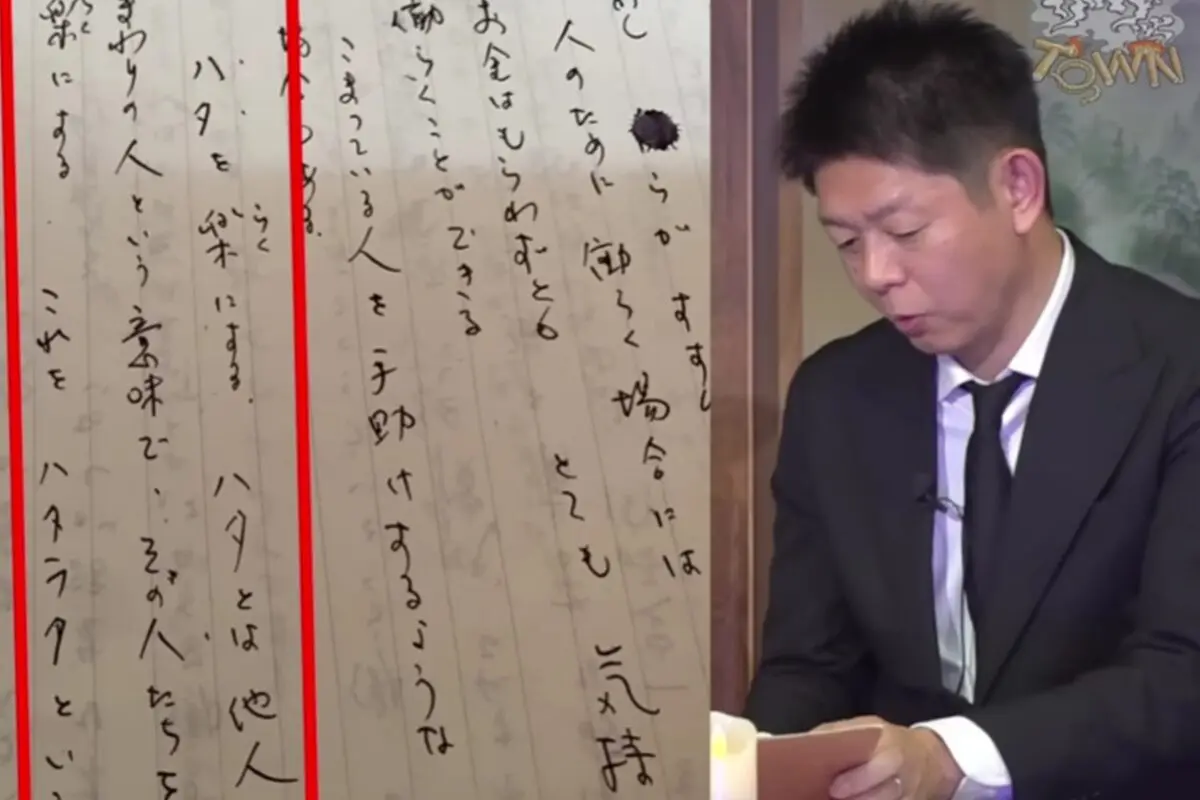 らが すすし
人のために 働らく 場合には
お金はもらわずとも とても 気持
働らくことができる
こまっている人を 手助けするような
ある。
ハタを 楽にする。 ハタとは 他人
らく
まわりの人という意味で、その人たちを
楽にする。 これを ハタラクとい
らく
TOWN